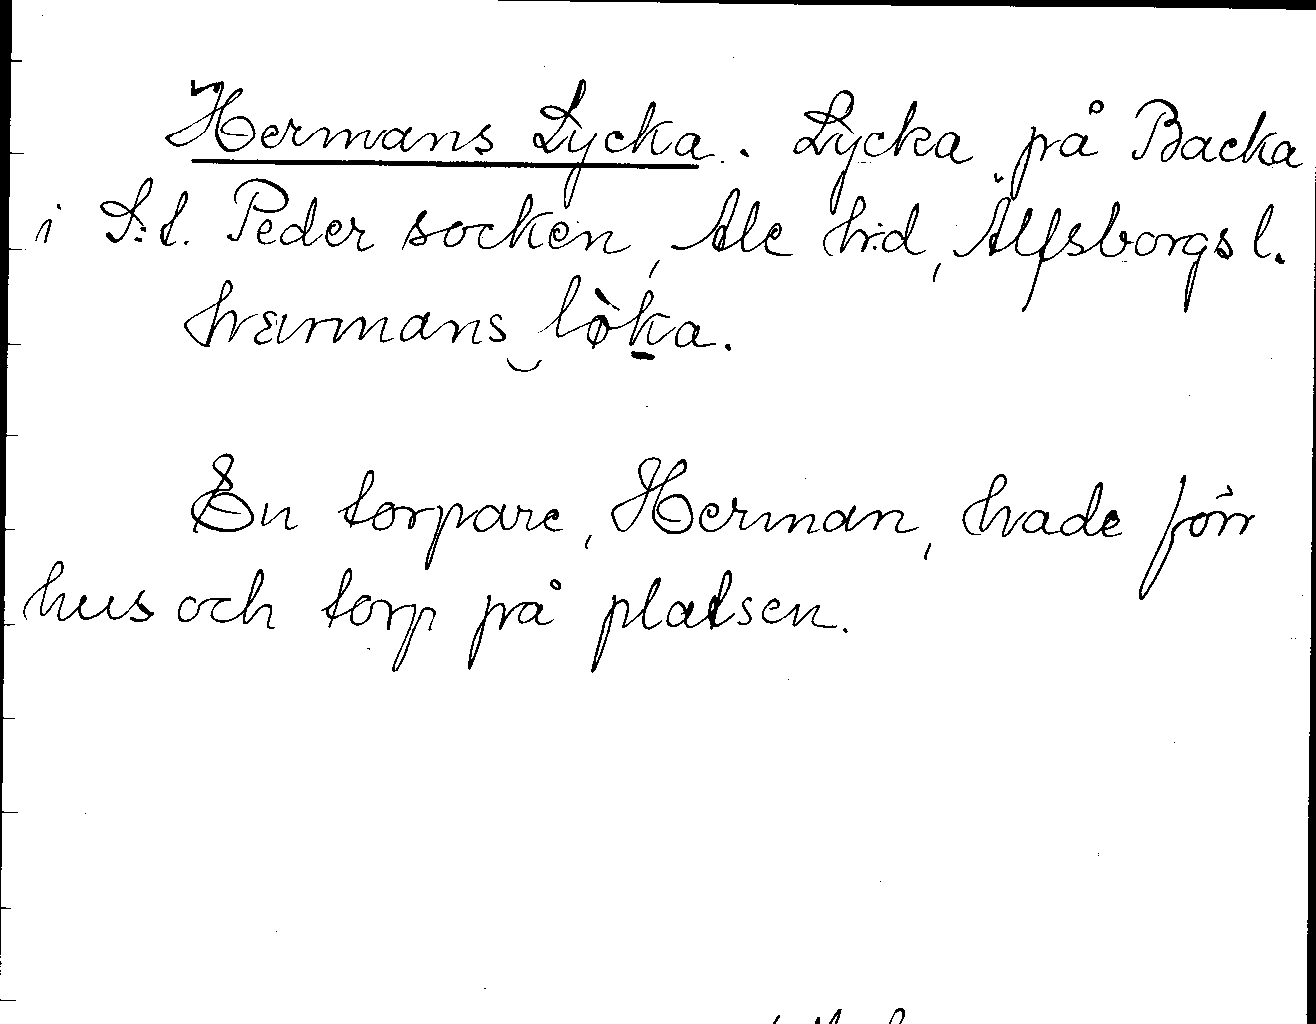 Hermans Lycka. Lycka på Backa
i S:t. Peder socken, Ale h:d, Älfsborgs l.
hærmans lòka.
En torpare, Herman, hade förr
hus och torp på platsen.